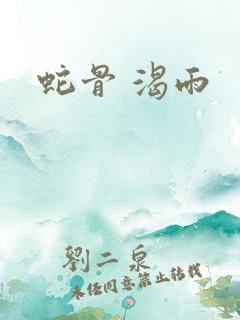 蛇骨 渴雨
劉二泉
未经同意禁止转载